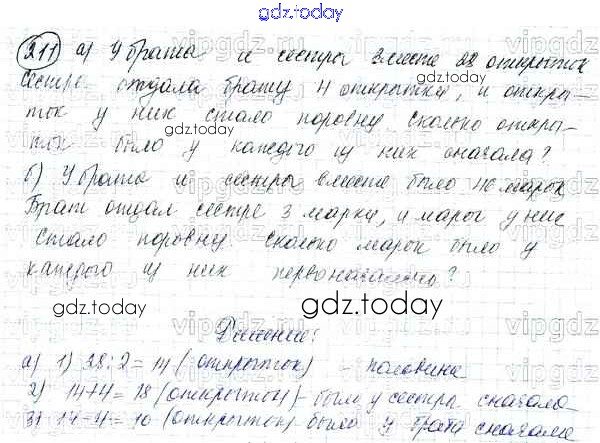 gdz.today
211 а) У брата и сестры вместе 28 открыток
Сестра отдала брату 4 открытки, и откры-
ток у них стало поровну Сколько откры-
gdz.today
ток было у каждого из них сначала?
б) У брата и сестры вместе было марок
Брат отдал сестре 3 марки, и марок у них
стало поровну. Сколько марок было у
каждого из них первоначально?
gdz.today
Решение:
а) 1) 28:2=14 (открыток) - половина
2) 14+4=18 (открыток) - было у сестры сначала
3) 14-4=10 (открыток) - было у брата сначала